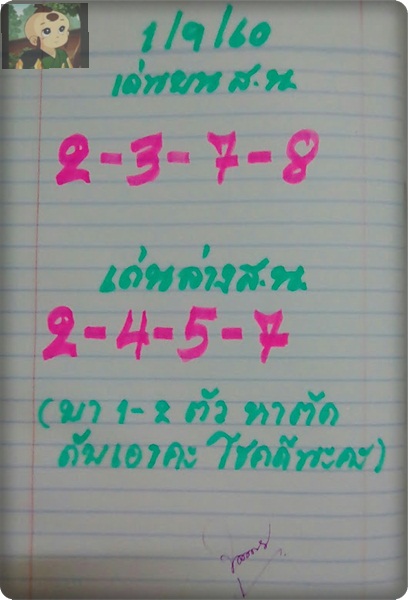 1/9/60
เด่นบน ส.น.
2-3-7-8
เด่นล่าง ส.น.
2-4-5-7
(มา 1-2 ตัว หาตัด
กันเอาคะ โชคดีนะคะ)